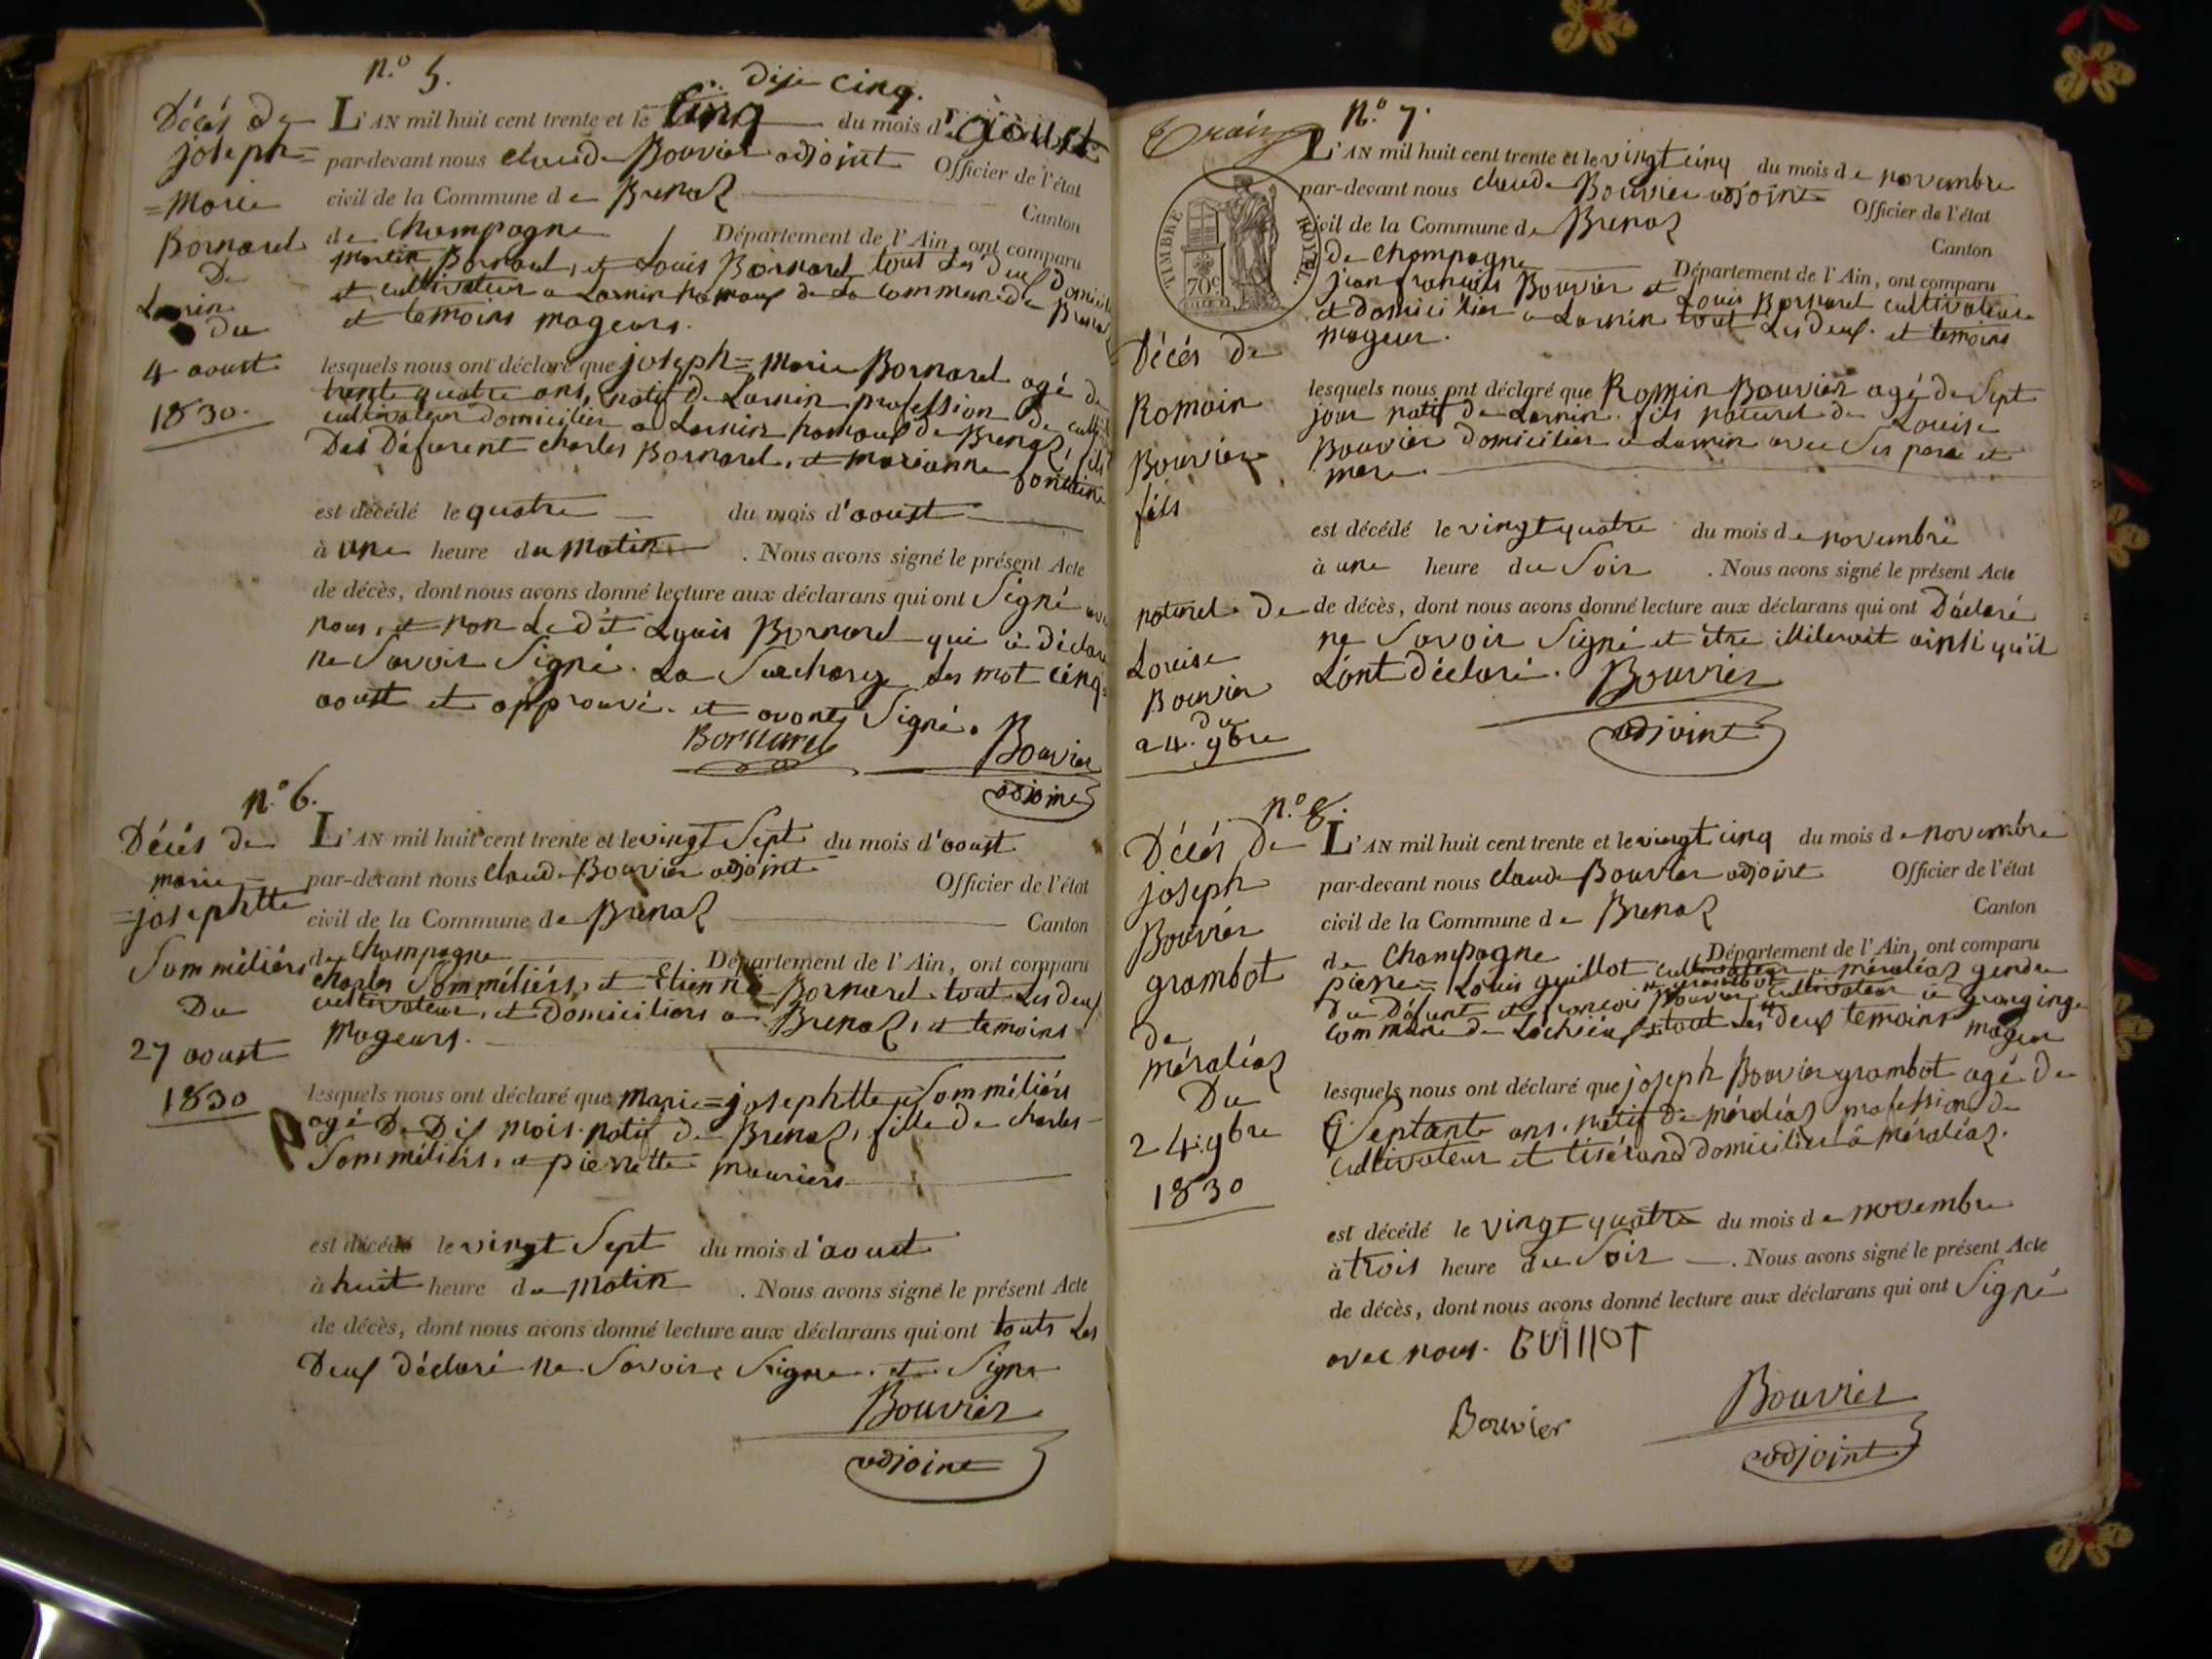 n.o 5.
dije cinq.
Décés de
joseph=
=Marie
Bornarel
De
Lornin
du
4 aoust
1830.
L'AN mil huit cent trente et le Cinq du mois d'aoust
par-devant nous claude Bouvier adjoint Officier de l'état
civil de la Commune de Brenaz Canton
de Champagne Département de l'Ain, ont comparu
Bornarel, et Louis Bornarel tout les deux Domicilié
et cultivateur a Lornin hamaux de La commune de Brenaz
et temoins mageurs.
lesquels nous ont déclaré que joseph=Marie Bornarel agé de
trente quatre ans, natif de Lornin profession de
cultivateur domicilier a Lornin hamaux de Brenaz, fils
Des Défurent charles Bornarel, et marianne fontaine
est décédé le quatre du mois d'aoust
à une heure du matin . Nous avons signé le présent Acte
de décès, dont nous avons donné lecture aux déclarans qui ont Signé avec
nous, et non Le dit Louis Bornarel qui à Déclaré
ne Savoir Signé. La Surcharge des mot cinq
aoust et approuvé. et avont Signé.
Bornarel
Bouvier
adjoint
n.o 6.
Décés de
marie=
=josephtte
Somméliérs
Du
27 aoust
1830
L'AN mil huit cent trente et le vingt Sept du mois d'aoust
par-devant nous claude Bouvier adjoint Officier de l'état
civil de la Commune de Brenaz Canton
de Champagne Département de l'Ain, ont comparu
charles Somméliérs, et Etienne Bornarel tout Les deux
cultivateur, et Domiciliers a Brenaz, et temoins
Mageurs.
lesquels nous ont déclaré que marie=josephtte Somméliérs
agé De Dix mois natif de Brenaz, fille de charles
Somméliérs, et pierrette mouriers
est décédé le vingt Sept du mois d'aoust
à huit heure du Matin . Nous avons signé le présent Acte
de décès, dont nous avons donné lecture aux déclarans qui ont touts Les
Deux déclaré ne Savoir Signe. et Signe
Bouvier
adjoint
n.o 7.
TIMBRE ROYAL
70c
Décés de
Romain
Bouvier
fils
naturel de
Louise
Bouvier
du
24. 9bre
L'AN mil huit cent trente et le vingt cinq du mois de novembre
par-devant nous claude Bouvier adjoint Officier de l'état
civil de la Commune de Brenaz Canton
de Champagne Département de l'Ain, ont comparu
jean françois Bouvier et Louis Bornarel cultivateur
et domicilier a Lornin tout Les deux. et temoins
mageur.
lesquels nous ont déclaré que Romin Bouvier agé de Sept
jour natif de Lornin. fils naturel de Louise
Bouvier domicilier a Lornin avec Ses pere et
mere.
est décédé le vingt quatre du mois de novembre
à une heure du Soir . Nous avons signé le présent Acte
de décès, dont nous avons donné lecture aux déclarans qui ont Déclaré
ne Savoir Signé et être illiteroit ainsi qu'il
L'ont Déclaré. Bouvier
adjoint
n.o 8.
Décés De
joseph
Bouvier
grambot
de
méraléaz
Du
24. 9bre
1830
L'AN mil huit cent trente et le vingt cinq du mois de novembre
par-devant nous claude Bouvier adjoint Officier de l'état
civil de la Commune de Brenaz Canton
de Champagne Département de l'Ain, ont comparu
pierre=Louis guillot cultivateur a méraléaz gendre
Du Défunt et francois Bouvier grambot cultivateur à
commune de Lochieux tout Les deux temoins mageur
lesquels nous ont déclaré que joseph Bouvier grambot agé de
Septante ans. natif de méraléaz profession de
cultivateur et tisérand domicilier à méraléaz.
est décédé le vingt quatre du mois de novembre
à trois heure du Soir . Nous avons signé le présent Acte
de décès, dont nous avons donné lecture aux déclarans qui ont Signé
avec nous. GUIllOT
Bouvier
Bouvier
adjoint